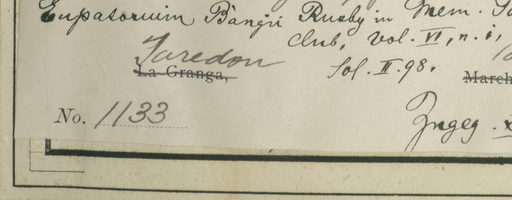 Eupatorium Bangii Rusby in Mem.
Club, Vol. VI, n. 1,
La Granga, fol. II. 98. March
No. 1133